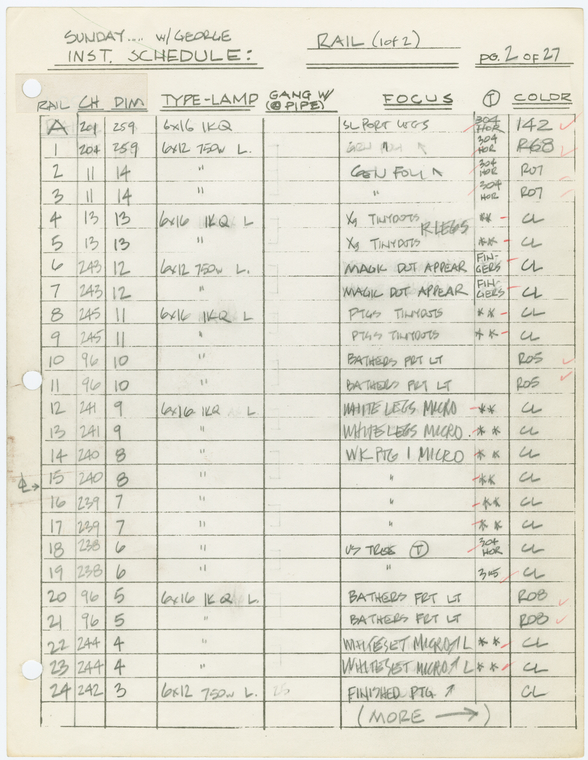 SUNDAY.... W/ GEORGE
INST. SCHEDULE:
RAIL (1 of 2)
PG. 2 OF 27
RAIL CH DIM TYPE-LAMP GANG W/ (@ PIPE) FOCUS Ⓣ COLOR
A 201 259 6x16 1KQ SL PORT LEGS 304 HOR 142
1 204 259 6x12 750W L. " 304 HOR R68
2 11 14 " GEN FOLI 304 HOR R07
3 11 14 " " 304 HOR R07
4 13 13 6x16 1KQ L XG TINYDOTS R LEGS ** CL
5 13 13 " XG TINYDOTS ** CL
6 243 12 6x12 750W L. MAGIC DOT APPEAR FIN-GERS CL
7 243 12 " MAGIC DOT APPEAR FIN-GERS CL
8 245 11 6x16 1KQ L PTGS TINYDOTS ** CL
9 245 11 " PTGS TINYDOTS ** CL
10 96 10 " BATHERS FRT LT R05
11 96 10 " BATHERS FRT LT R05
12 241 9 6x16 1KQ L WHITE LEGS MICRO ** CL
13 241 9 " WHITE LEGS MICRO. ** CL
14 240 8 " WK PTG 1 MICRO ** CL
15 240 8 " " ** CL
16 239 7 " " ** CL
17 239 7 " " ** CL
18 238 6 " US TREE Ⓣ 304 HOR CL
19 238 6 " 345 CL
20 96 5 6x16 1KQ L. BATHERS FRT LT R08
21 96 5 " BATHERS FRT LT R08
22 244 4 " WHITESET MICRO↑L ** CL
23 244 4 " WHITESET MICRO↑L ** CL
24 242 3 6x12 750W L. FINISHED PTG ↑ CL
(MORE →)